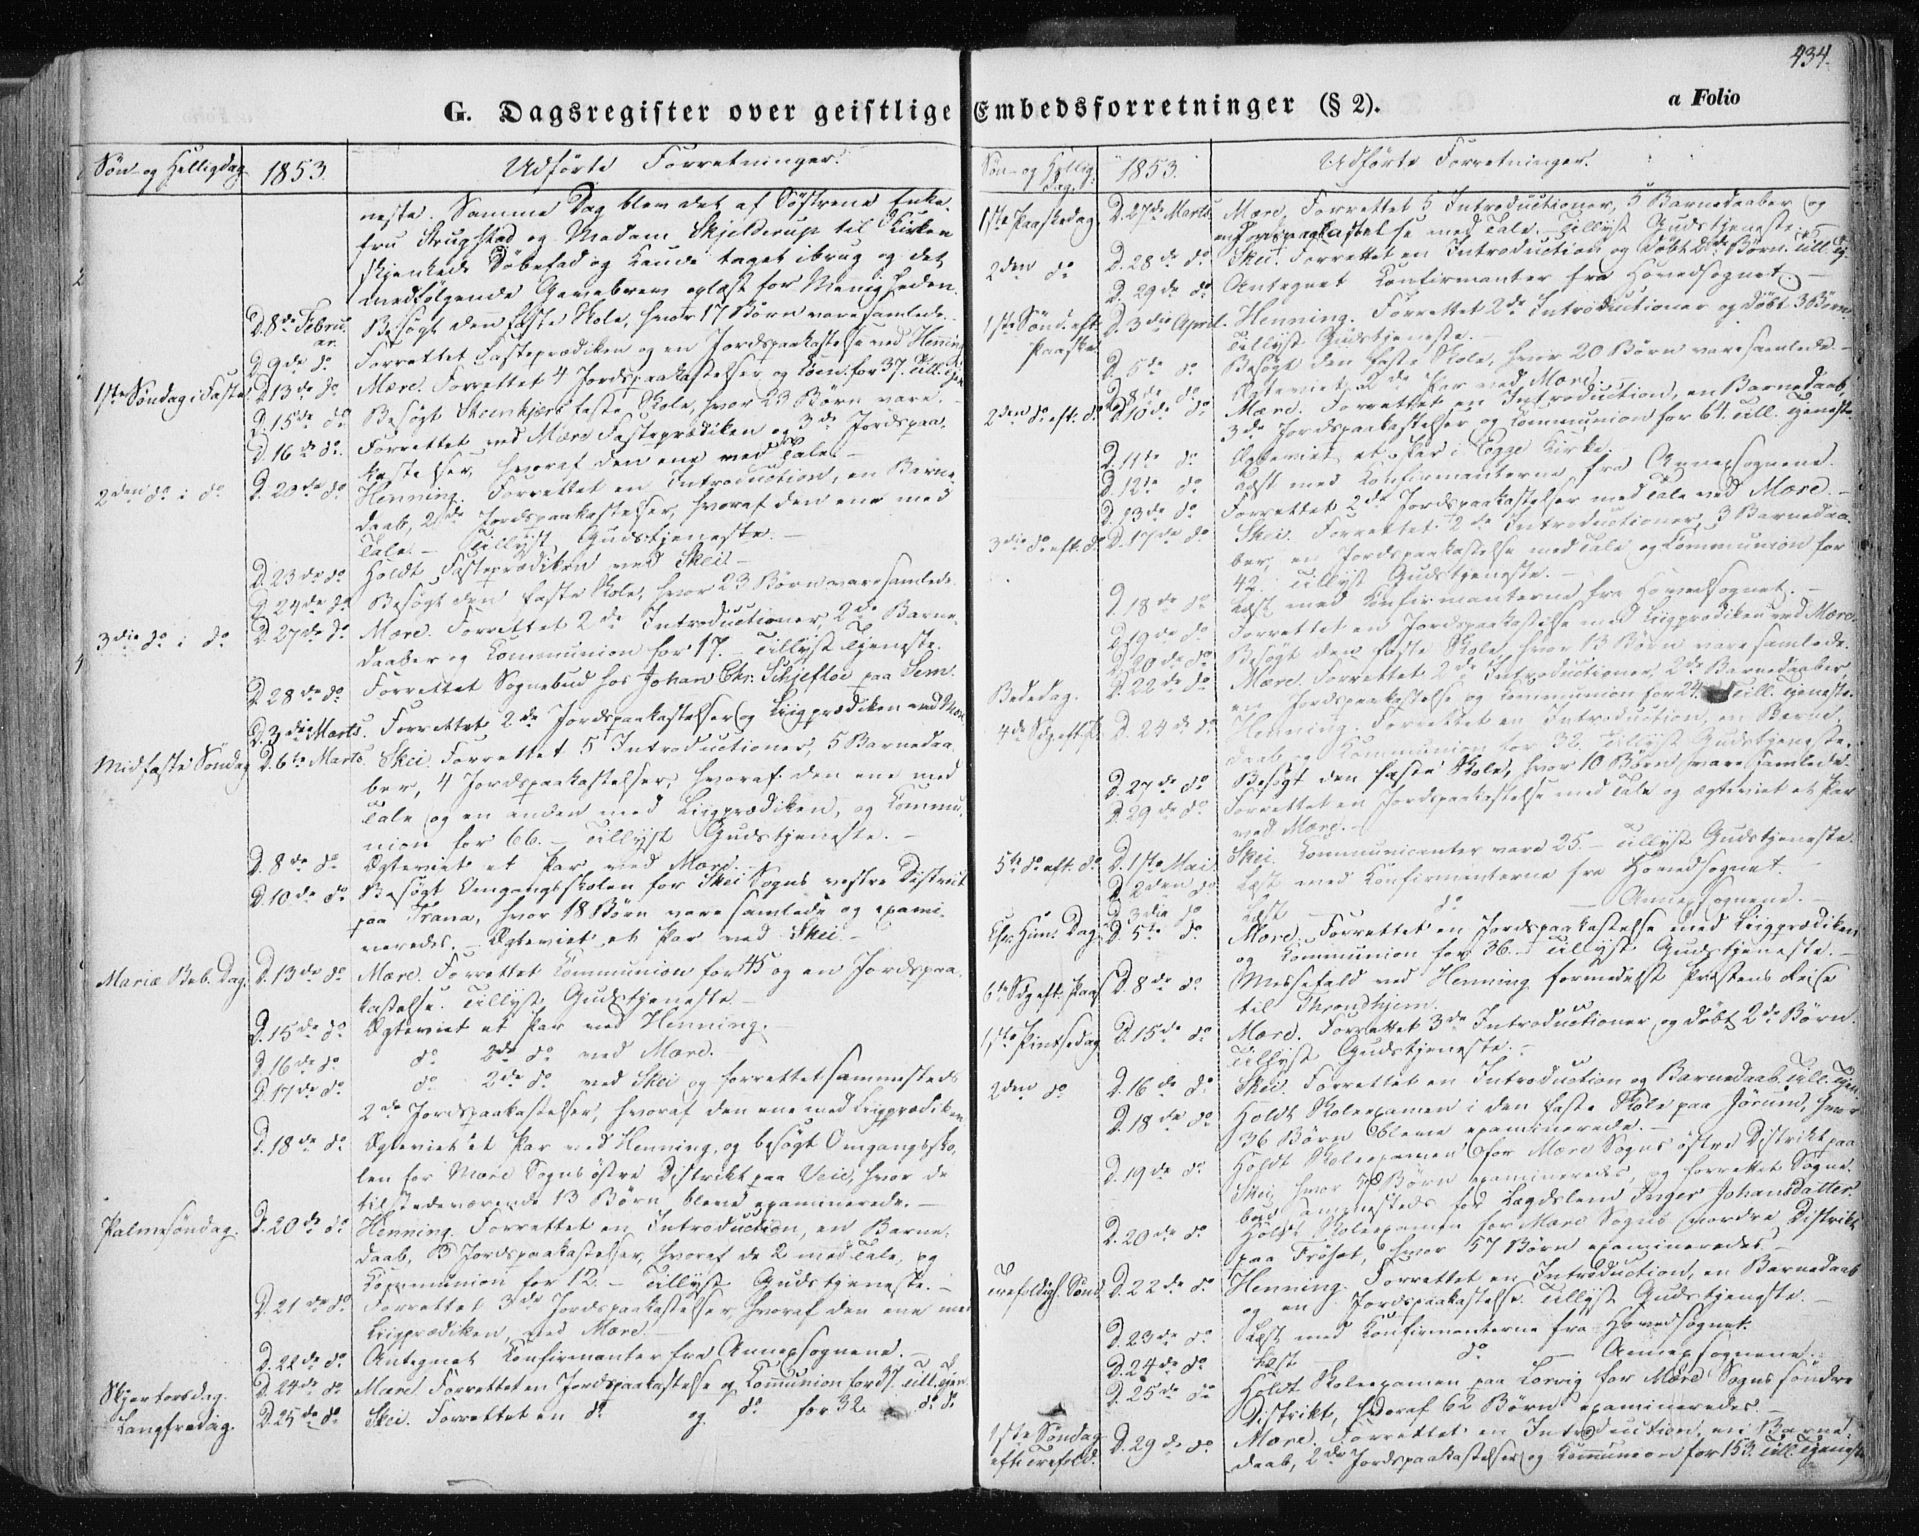 434.
G. Dagsregister over geistlige Embedsforretninger (§ 2).
a Folio
Søn- og Helligdag 1853. Udførte Forretninger.
neste. Samme Dag blev det af Søstrene Enke-
fru Strugstad og Madam Skjelderup til Kirken
skjenkede Døbefad og Kande taget ibrug og det
medfølgende Gavebrev oplæst for Menigheden.
D. 8de Febru- Besøgt den faste Skole, hvor 17 Børn vare samlede.
ar.
D. 9de do Forrettet Fasteprædiken og en Jordspaakastelse ved Henning.
1ste Søndag i Faste D. 13de do Mære. Forrettet 4 Jordspaakastelser og Com. for 37. Till. Tjen.
D. 15de do Besøgt Steenkjærs faste Skole, hvor 23 Børn vare.
D. 16de do. Forrettet ved Mære Fasteprædiken og 3de Jordspaa-
kastelser, hvoraf den ene med Tale.
2den do i do D. 20de do Henning. Forrettet en Introduction, en Barne-
daab, 2de Jordspaakastelser, hvoraf den ene med
Tale. – Tillyst Gudstjeneste. –
D. 23de do Holdt Fasteprædiken ved Skei –
D. 24de do Besøgt den faste Skole, hvor 23 Børn vare samlede.
3die do i do D. 27de do Mære. Forrettet 2de Introductioner, 2de Barne-
daaber og Kommunion for 17. – Tillyst Tjeneste.
D. 28de do. Forrettet Sognebud hos Johan Chr. Schjefloe paa Sem.
D. 3die Marts. Forrettet 2de Jordspaakastelser og Liigprædiken ved Mære
Midfaste Søndag D. 6te Marts. Skei. Forrettet 5 Introductioner, 5 Barnedaa-
ber, 4 Jordspaakastelser, hvoraf den ene med
Tale og en anden med Liigprædiken, og Kommu-
nion for 66. – Tillyst Gudstjeneste. –
D. 8de do Ægteviet et Par ved Mære. –
D. 10de do Besøgt Omgangsskolen for Skei Sogns vestre District
paa Trana, hvor 18 Børn vare samlede og exami-
neredes. – Ægteviet et Par ved Skei –
Mariæ Beb. Dag. D. 13de do Mære. Forrettet Communion for 45 og en Jordspaa-
kastelse. Tillyst Gudstjeneste. –
D. 15de do Ægteviet et Par ved Henning.
D. 16de do do 2de do ved Mære. –
D. 17de do. do 2de do ved Skei og forrettet sammesteds
2de Jordspaakastelser, hvoraf den ene med Liigprædiken
D. 18de do Ægteviet et Par ved Henning, og besøgt Omgangssko-
len for Mære Sogns østre Distrikt paa Veie, hvor de
tilstedeværende 13 Børn bleve examinerede. –
Palmesøndag. D. 20de do Henning. Forrettet en Introduction, en Barne-
daab, 3 Jordspaakastelser, hvoraf de 2 med Tale, og
Kommunion for 12. – Tillyst Gudstjeneste. –
D. 21de do Forrettet 3de Jordspaakastelser, hvoraf den ene med
Liigprædiken ved Mære. –
D. 22de do Antegnet Konfirmanter fra Annexsognene. –
Skjertorsdag. D. 24de do Mære. Forrettet en Jordspaakastelse og Communion for 37. Till. Tjen.
Langfredag. D. 25de do Skei. Forrettet en do og do for 32. do do
Søn- og Hellig- 1853. Udførte Forretninger.
dag.
1ste Paaskedag. D. 27de Marts. Mære. Forrettet 5 Introductioner, 5 Barnedaaber og
en Jordspaakastelse med Tale. – Tillyst Gudstjeneste.
2den do D. 28de do Skei. Forrettet en Introduction og døbt 2de Børn. Till. Tj.
D. 29de do Antegnet Konfirmanter fra Hovedsognet. –
1ste Sønd. eft. D. 3die April. Henning. Forrettet 2de Introductioner og døbt 3 Børn.
Paaske Tillyst Gudstjeneste. –
D. 5te do Besøgt den faste Skole, hvor 20 Børn vare samlede. –
D. 8de do Ægteviet 2de Par ved Mære.
2den do eft. do D. 10de do Mære. Forrettet en Introduction, en Barnedaab,
3de Jordspaakastelser og Communion for 64. Till. Tjeneste.
D. 11te do Ægteviet et Par i Egge Kirke.
D. 12te do Læst med Konfirmanterne fra Annexsognene.
D. 13de do Forrettet 2de Jordspaakastelser med Tale ved Mære. –
3die do eft. do D. 17de do Skei. Forrettet 2de Introductioner, 3 Barnedaa-
ber, en Jordspaakastelse med Tale og Kommunion for
42. Tillyst Gudstjeneste. –
D. 18de do Læst med Konfirmanterne fra Hovedsognet. –
D. 19de do Forrettet en Jordspaakastelse med Liigprædiken ved Mære.
D. 20de do Besøgt den faste Skole, hvor 13 Børn vare samlede.
Bededag. D. 22de do Mære. Forrettet 2de Introductioner, 2de Barnedaaber,
en Jordspaakastelse og Communion for 24. Till. Tjeneste.
4de Sdg eft. P. D. 24de do Henning. Forrettet en Introduction, en Barne-
daab og Communion for 32. Tillyst Gudstjeneste.
D. 27de do Besøgt den faste Skole, hvor 10 Børn vare samlede.
D. 29de do Forrettet en Jordspaakastelse med Tale og ægteviet et Par
ved Mære. –
5te do eft. do D. 1ste Mai Skei. Kommunicanter vare 25. – Tillyst Gudstjeneste.
D. 2den do Læst med Konfirmanterne fra Hovedsognet. –
D. 3die do Læst – do – Annexsognene. –
Chr. Him. Dag. D. 5te do Mære. Forrettet en Jordspaakastelse med Liigprædiken
og Kommunion for 36. – Tillyst Gudstjeneste. –
6te Sdg eft. Paas D. 8de do Messefald ved Henning formedelst Præstens Reise
til Throndhjem.
1ste Pintsedag D. 15de do Mære. Forrettet 3de Introductioner og døbt 2de Børn.
Tillyst Gudstjeneste. –
2den do D. 16de do Skei. Forrettet en Introduction og Barnedaab. Till. Tjen.
D. 18de do Holdt Skoleexamen i den faste Skole paa Jørum, hvor
36 Børn bleve examinerede. –
D. 19de do Holdt Skoleexamen for Mære Sogns østre Distrikt paa
Skei, hvor Børn examineredes, og forrettet Sogne-
bud sammesteds for Lægdslem Inger Johansdatter.
D. 20de do Holdt Skoleexamen for Mære Sogns nordre Distrikt
paa Frøset, hvor 57 Børn examineredes. –
Trefoldigh. Sønd D. 22de do Henning. Forrettet en Introduction, en Barnedaab
og en Jordspaakastelse. Tillyst Gudstjeneste. –
D. 23de do Læst med Konfirmanterne fra Hovedsognet.
D. 24de do Læst do – Annexsognene. –
D. 25de do Holdt Skoleexamen paa Lorvig for Mære Sogns søndre
Distrikt, hvoraf 62 Børn examineredes. –
1ste Søndag D. 29de do Mære. Forrettet en Introduction, en Barne-
efter Trefold. daab, 2de Jordspaakastelser og Kommunion for 153. Till. Tjeneste